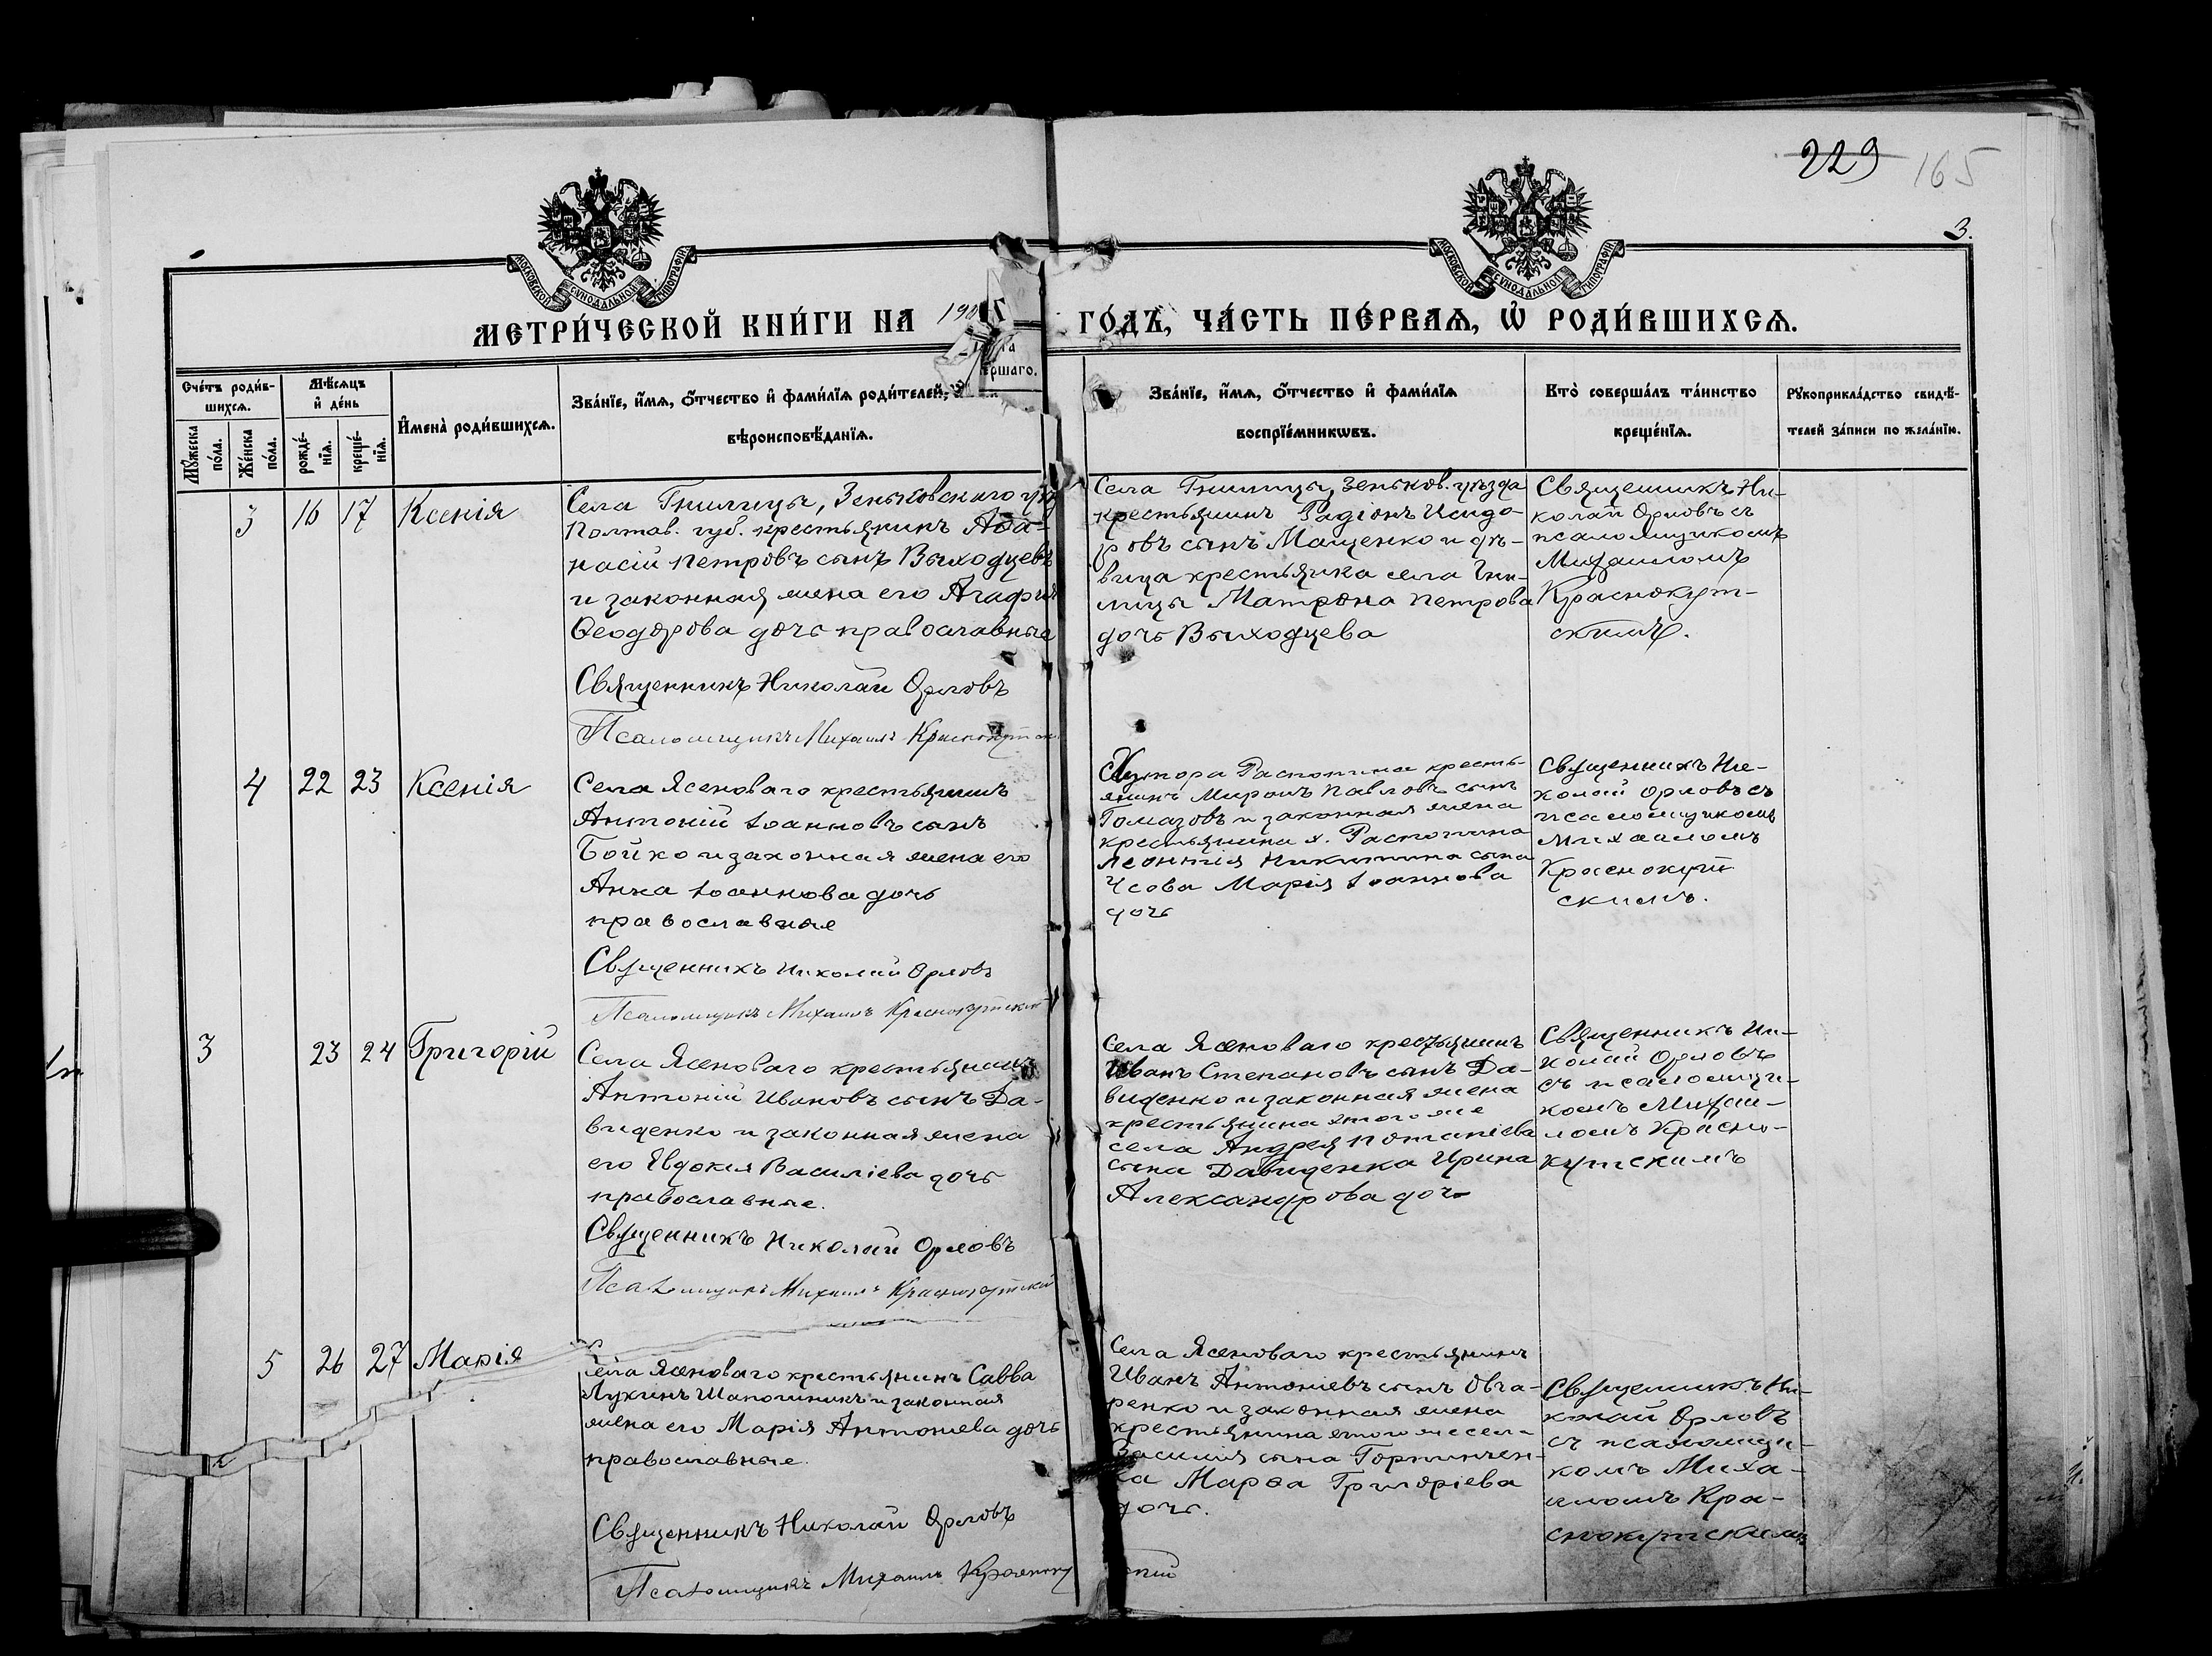 229 165
3.
МОСКОВСКОЙ СѴНОДАЛЬНОЙ ТИПОГРАФІИ
МОСКОВСКОЙ СѴНОДАЛЬНОЙ ТИПОГРАФІИ
МЕТРИ́ЧЕСКОЙ КНИ́ГИ НА 190
ГО́ДЪ, ЧА́СТЬ ПЕ́РВАЯ, Ѡ҆ РОДИ́ВШИХСЯ.
Сче́тъ роди́в-
шихсѧ.
Мꙋ́жеска по́ла.
Же́нска по́ла.
Мѣ́сѧцъ
и҆ де́нь
рожде́-
нїѧ.
креще́-
нїѧ.
И҆мена̀ роди́вшихсѧ.
Зва́нїе, и҆́мѧ, ѻ҆́тчество и҆ фами́лїѧ роди́телей,
вѣроисповѣ́данїѧ.
ршаго.
Зва́нїе, и҆́мѧ, ѻ҆́тчество и҆ фами́лїѧ
воспрїе́мникѡвъ.
Кто̀ соверша́лъ та́инство
креще́нїѧ.
Рꙋкоприкла́дство свидѣ́-
телей за́писи по жела́нїю.
3 16 17 Ксенія
Села Гнилицы, Зеньковскаго уѣз
Полтав. губ. крестьянинъ Аѳа-
насій Петровъ сынъ Выходцевъ
и законная жена его Агафія
Ѳеодорова дочь православные
Священникъ Николай Орловъ
Псаломщикъ Михаилъ Краснокутск
Села Гнилицы, Зеньков. уѣзда
крестьянинъ Радіонъ Исидо-
ровъ сынъ Мащенко и дѣ-
вица крестьянка села Гни-
лицы Матрона Петрова
дочь Выходцева
Священникъ Ни-
колай Орловъ съ
псаломщикомъ
Михаиломъ
Краснокут-
скимъ.
4 22 23 Ксенія
Села Ясеноваго крестьянинъ
Антоній Іоанновъ сынъ
Бойко и законная жена его
Анна Іоаннова дочь
православные
Священникъ Николай Орловъ
Псаломщикъ Михаилъ Краснокутскій
Хутора Распопина кресть-
янинъ Миронъ Павловъ сынъ
Гомазовъ и законная жена
крестьянина х. Распопина
Леонтія Никитина сына
Усова Марія Іоаннова
дочь
Священникъ Ни-
колай Орловъ съ
псаломщикомъ
Михаиломъ
Краснокут
скимъ.
3 23 24 Григорій
Села Ясеноваго крестьянинъ
Антоній Ивановъ сынъ Да-
виденко и законная жена
его Евдокія Василіева дочь
православные.
Священникъ Николай Орловъ
Псаломщикъ Михаилъ Краснокутскій
Села Ясеноваго крестьянинъ
Иванъ Степановъ сынъ Да-
виденко и законная жена
крестьянина этого же
села Андрея Потапіева
сына Давиденка Ирина
Александрова дочь
Священникъ Ни-
колай Орловъ
съ псаломщи-
комъ Михаи-
ломъ Красно-
кутскимъ
5 26 27 Марія
Села Ясеноваго крестьянинъ Савва
Лукинъ Шапошникъ и законная
жена его Марія Антоніева дочь
православные.
Священникъ Николай Орловъ
Псаломщикъ Михаилъ Краснокутскій
Села Ясеноваго крестьянинъ
Иванъ Антоніевъ сынъ Овча-
ренко и законная жена
крестьянина этого же села
Василія сына Горпинчен-
ка Марѳа Григоріева
дочь.
Священникъ Ни-
колай Орловъ
съ псаломщи-
комъ Миха-
иломъ Кра-
снокутскимъ